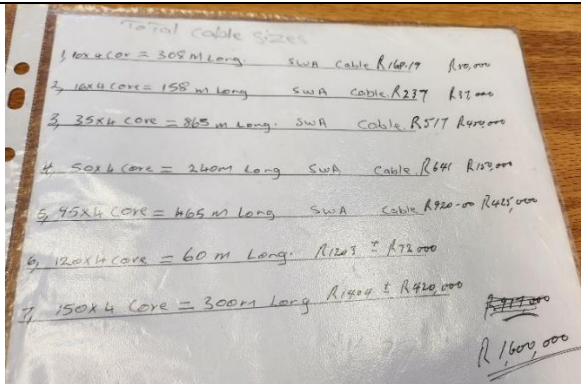 Total cable sizes
1, 10x4 Cor = 308 M Long. SWA Cable R168.19 R50,000
2, 16x4 Core = 158 m Long SWA Cable. R237 R37,000
3, 35x4 Core = 865 m Long. SWA Cable. R517 R450,000
4, 50x4 Core = 240m Long SWA Cable. R641 R150,000
5, 95x4 Core = 465 m Long SWA Cable R920-00 R425,000
6, 120x4 Core = 60 m Long. R1203 ± R72 000
7, 150x4 Core = 300m Long R1404 ± R420,000
R1,600,000